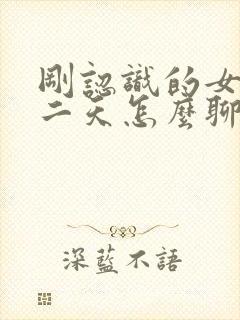 剛認識的女
二天怎麼聊
深藍不語